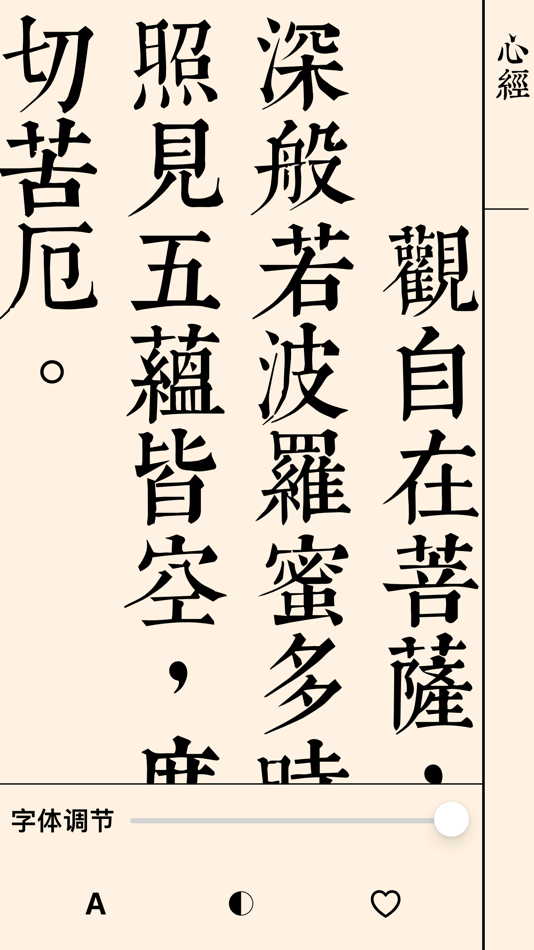 心經
觀自在菩薩，
深般若波羅蜜多時
照見五蘊皆空，度
切苦厄。
字体调节
A